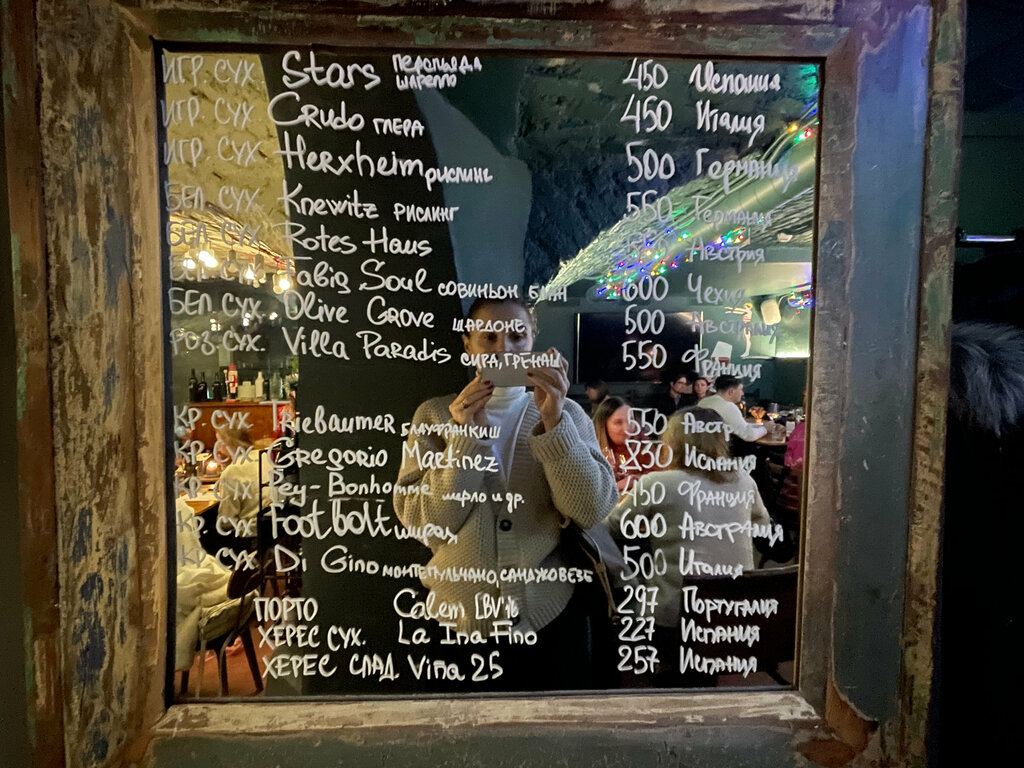 ИГР. СУХ. Stars ШАРЕЛЛО 450 Испания
ИГР. СУХ. Crudo ГЛЕРА 450 Италия
ИГР. СУХ. Herxheim РИСЛИНГ 500 Германия
БЕЛ. СУХ. Knewitz РИСЛИНГ 550 Германия
БЕЛ. СУХ. Rotes Haus Австрия
Soul СОВИНЬОН БЛАН 600 Чехия
БЕЛ. СУХ. Olive Grove ШАРДОНЕ 500
РОЗ. СУХ. Villa Paradis СИРА, ГРЕНАШ 550 Франция
КР. СУХ. Triebaumer БЛАУФРАНКИШ 550
КР. СУХ. Gregorio Martinez 830 Испания
КР. СУХ. Pey-Bonhomme мерло и др. 450 Франция
КР. СУХ. Football шираз 600 АВСТРАЛИЯ
КР. СУХ. Di Gino МОНТЕПУЛЬЧАНО, САНДЖОВЕЗЕ 500 Италия
ПОРТО Calem LBV'16 297 Португалия
ХЕРЕС СУХ. La Ina Fino 227 Испания
ХЕРЕС СЛАД Viña 25 257 Испания